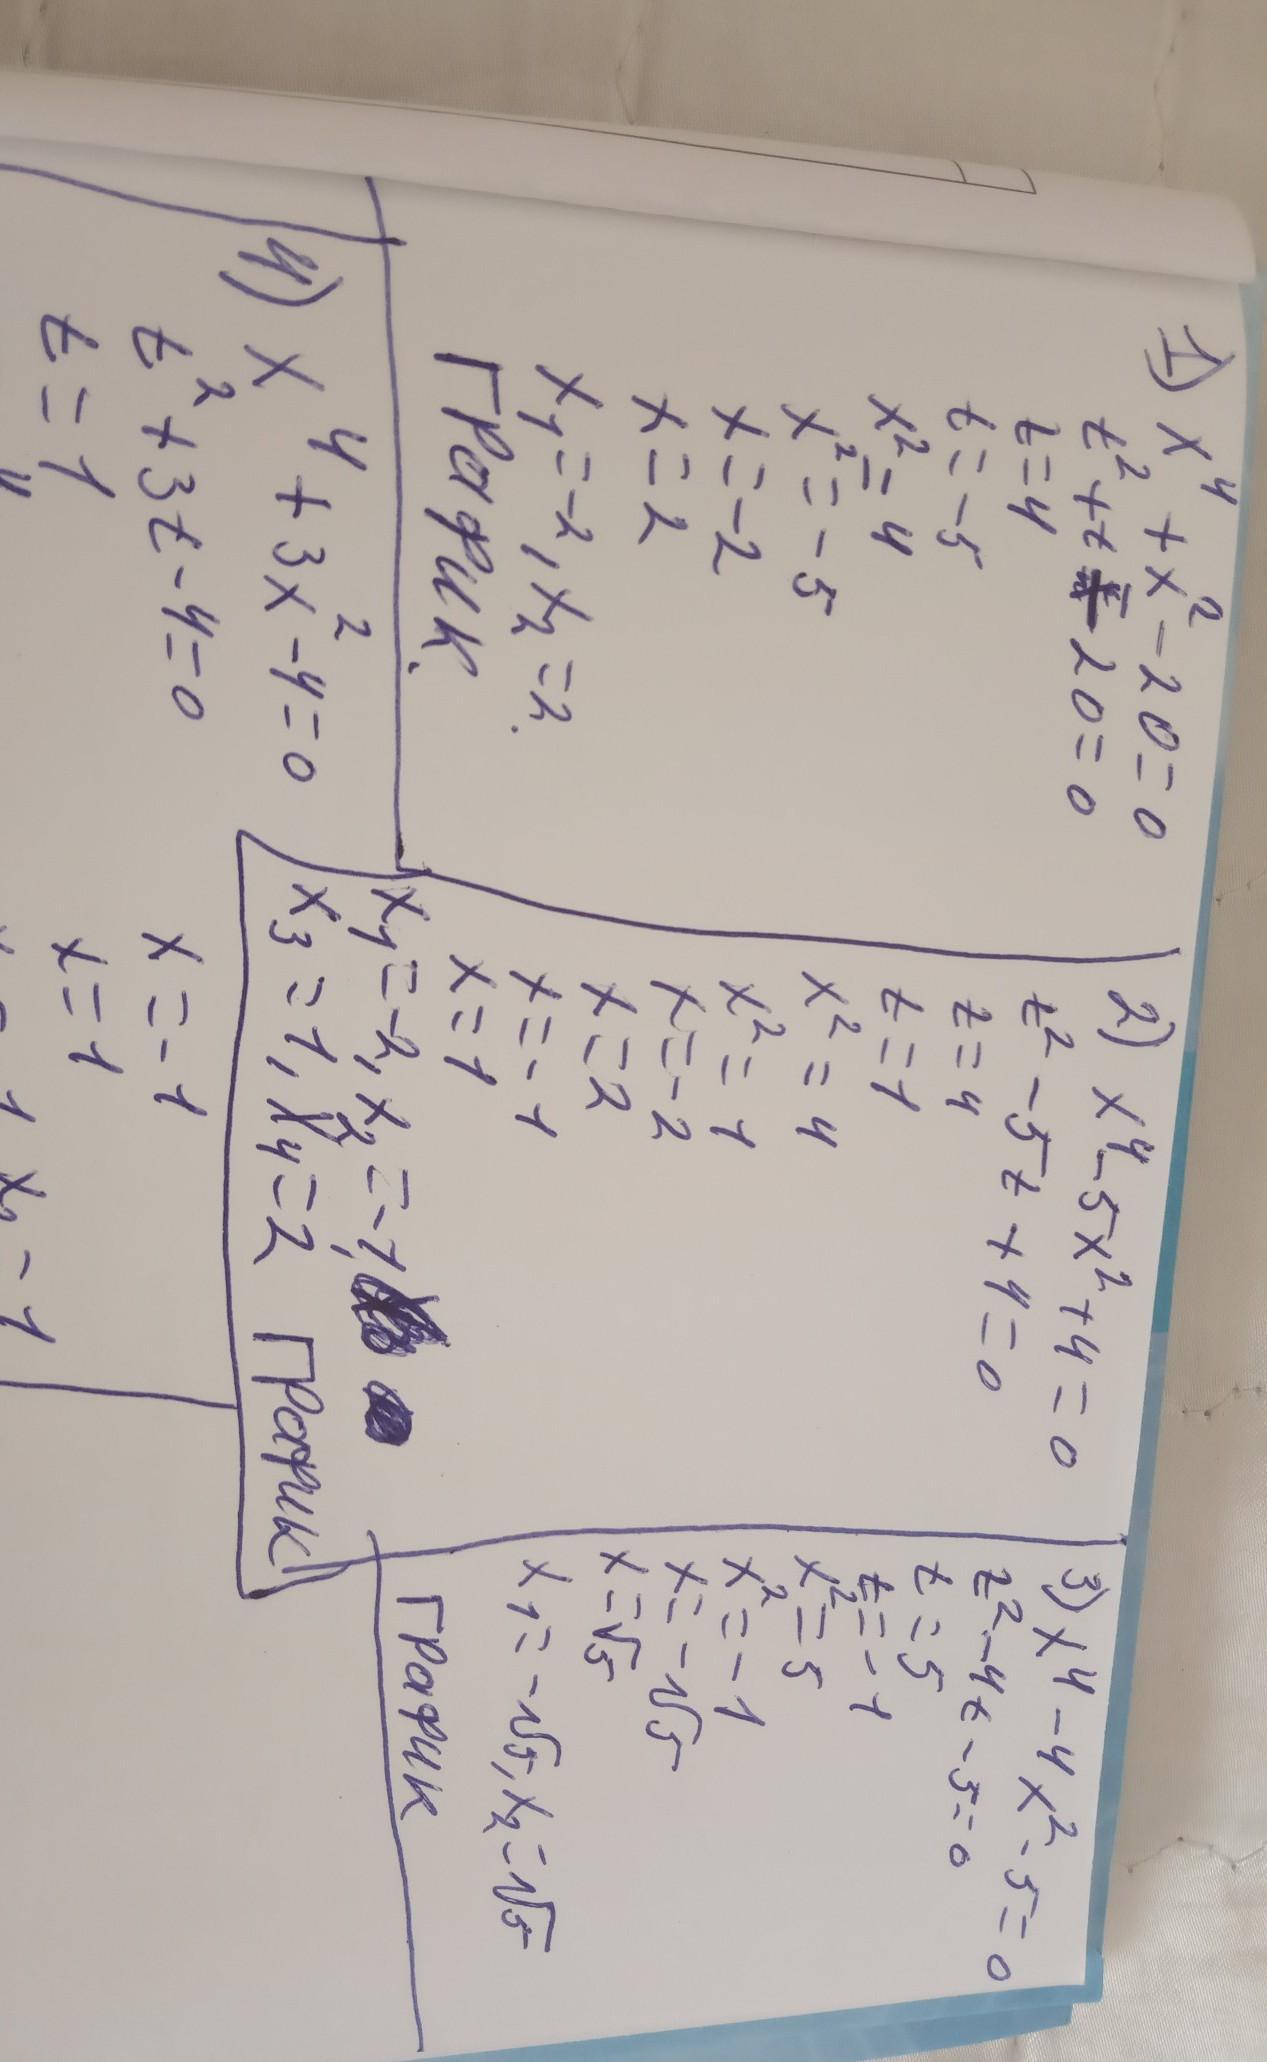 1) x⁴ + x² - 20 = 0
t² + t - 20 = 0
t = 4
t = -5
x² = 4
x² = -5
x = -2
x = 2
x₁ = -2, x₂ = 2.
График.
2) x⁴ - 5x² + 4 = 0
t² - 5t + 4 = 0
t = 4
t = 1
x² = 4
x² = 1
x = -2
x = 2
x = -1
x = 1
x₁ = -2, x₂ = -1,
x₃ = 1, x₄ = 2, График
3) x⁴ - 4x² - 5 = 0
t² - 4t - 5 = 0
t = 5
t = -1
x² = 5
x² = -1
x = -√5
x = √5
x₁ = -√5, x₂ = √5
График
4) x⁴ + 3x² - 4 = 0
t² + 3t - 4 = 0
t = 1
x = -1
x = 1